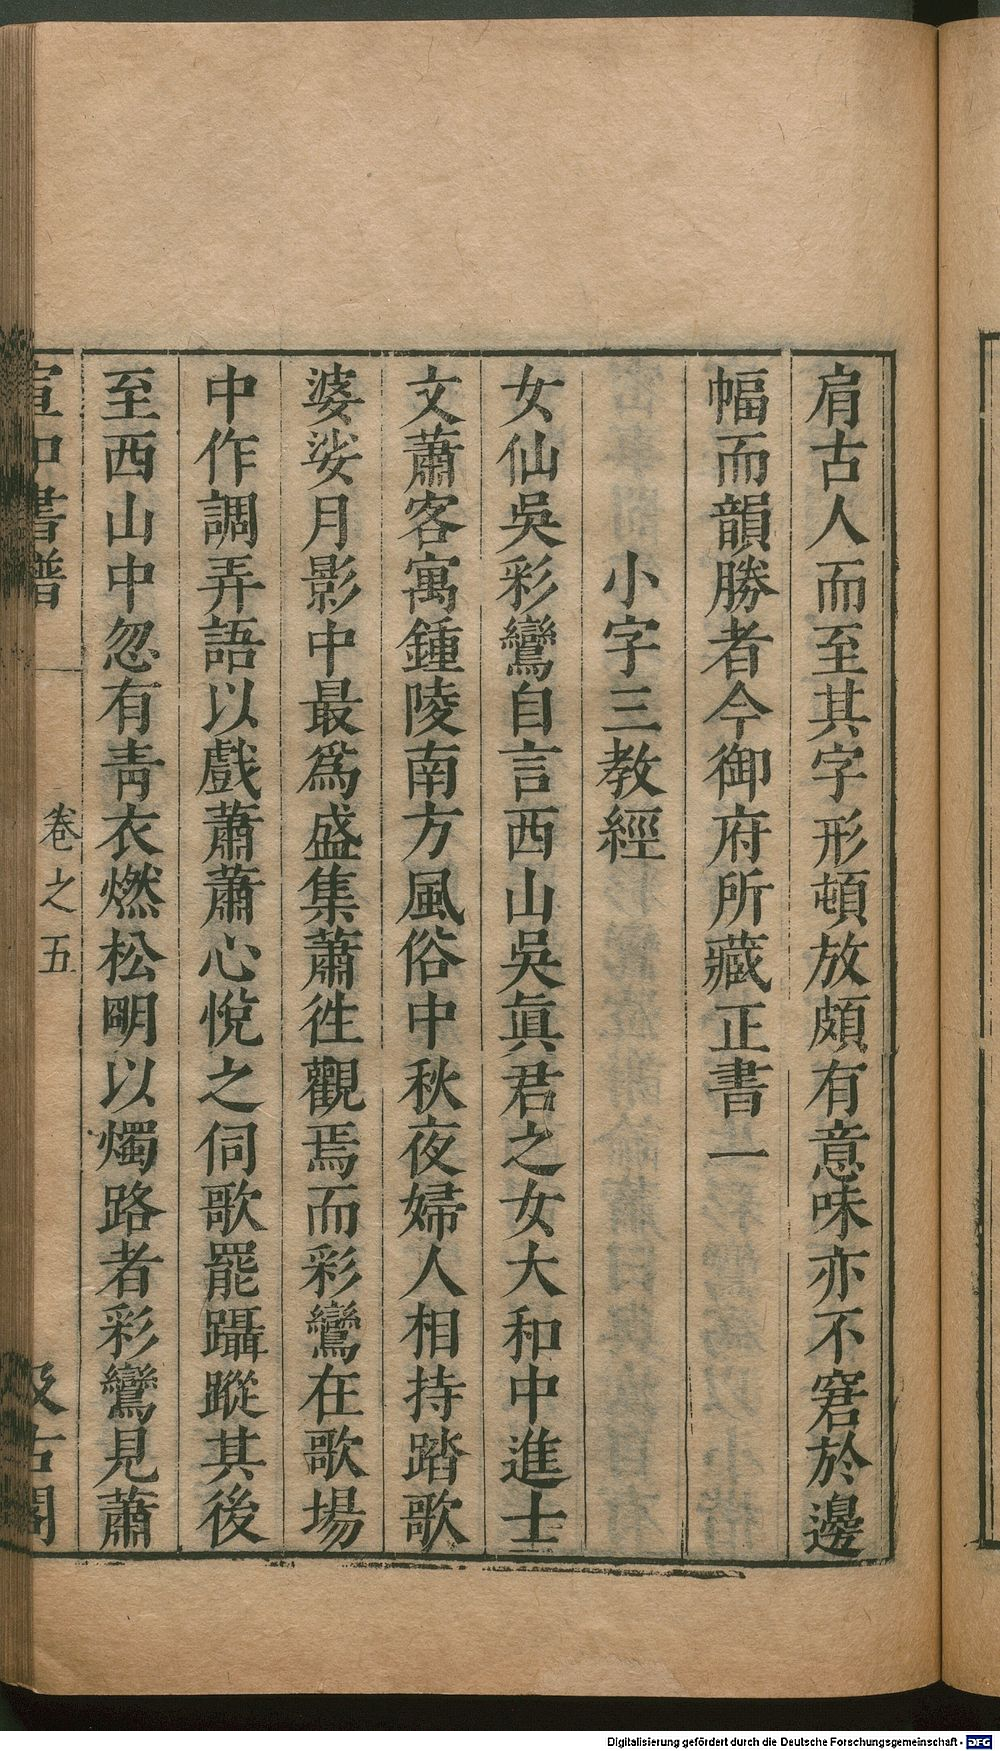 肩古人而至其字形頓放頗有意味亦不窘於邊
幅而韻勝者今御府所藏正書一
小字三教經
女仙吳彩鸞自言西山吳眞君之女大和中進士
文蕭客寓鍾陵南方風俗中秋夜婦人相持踏歌
婆娑月影中最爲盛集蕭徃觀焉而彩鸞在歌場
中作調弄語以戲蕭蕭心悅之伺歌罷躡蹤其後
至西山中忽有靑衣燃松明以燭路者彩鸞見蕭
宣和書譜 卷之五 汲古閣
Digitalisierung gefördert durch die Deutsche Forschungsgemeinschaft - DFG